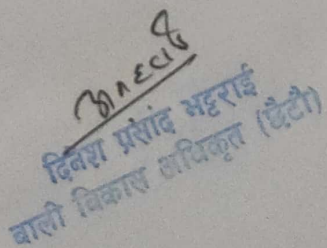 दिनेश प्रसाद भट्टराई
बाली विकास अधिकृत (छैटौ)